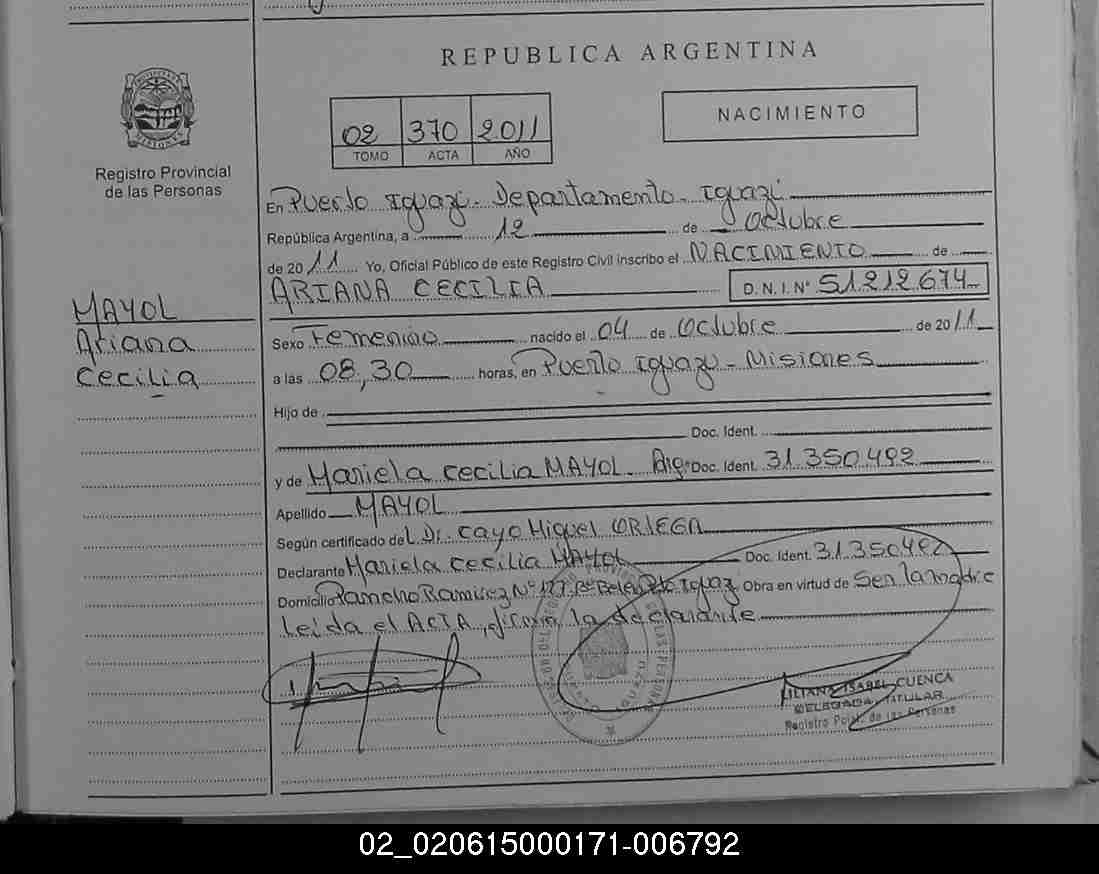 REPUBLICA ARGENTINA
02 370 2011
TOMO ACTA AÑO
NACIMIENTO
Registro Provincial
de las Personas
En Puerto Iguazú. Departamento. Iguazú
República Argentina, a 12 de Octubre
de 2011 Yo, Oficial Público de este Registro Civil inscribo el NACIMIENTO de
ARIANA CECILIA D.N.I. Nº 51212674
MAYOL
Ariana
Cecilia
Sexo Femenino nacido el 04 de Octubre de 2011
a las 08,30 horas, en Puerto Iguazu - Misiones
Hijo de
Doc. Ident.
y de Mariela Cecilia MAYOL. Arg. Doc. Ident. 31.350.492
Apellido MAYOL
Según certificado de L Dr. Cayo Miguel ORTEGA
Declarante Mariela Cecilia MAYOL Doc. Ident. 31.350.492
Domicilio Pancho Ramirez Nº 127 Bº Belen Pto Iguaz Obra en virtud de Ser la madre
Leida el ACTA, firma la declarante
LILIANA ISABEL CUENCA
DELEGADA TITULAR
Registro Pcial. de las Personas
02_020615000171-006792